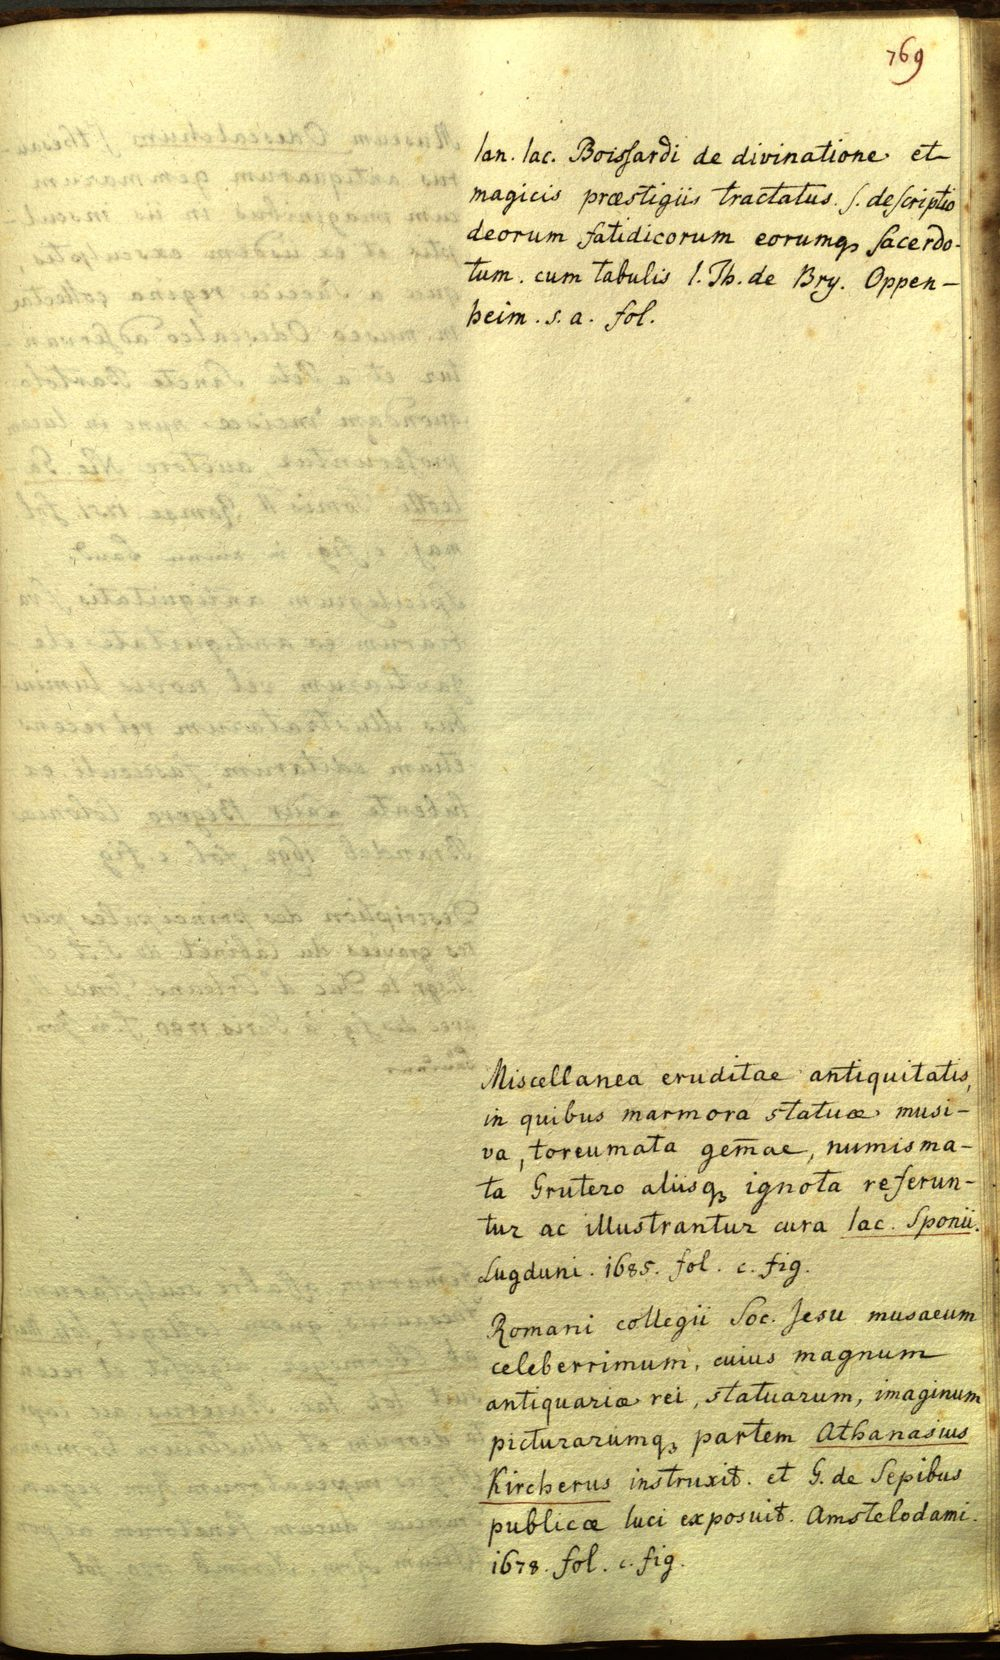 769
Ian. Iac. Boissardi de divinatione et
magicis præstigiis tractatus. s. descriptio
deorum fatidicorum eorumq; sacerdo-
tum. cum tabulis I. Th. de Bry. Oppen-
heim. s. a. fol.
Miscellanea eruditae antiquitatis,
in quibus marmora statuæ musi-
va, toreumata gem̄ae, numisma-
ta Grutero aliisq; ignota referun-
tur ac illustrantur cura Iac. Sponii.
Lugduni. 1685. fol. c. fig.
Romani collegii Soc. Jesu musaeum
celeberrimum, cuius magnum
antiquariæ rei, statuarum, imaginum
picturarumq; partem Athanasius
Kircherus instruxit. et G. de Sepibus
publicæ luci exposuit. Amstelodami.
1678. fol. c. fig.